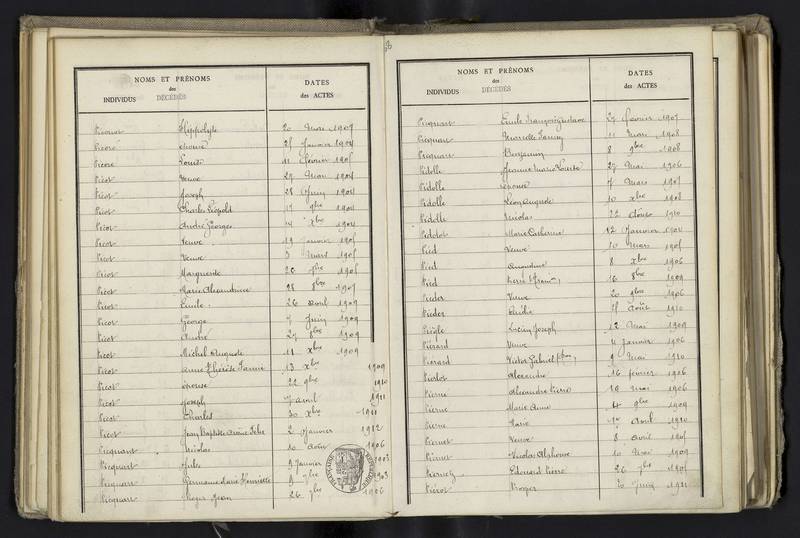 NOMS ET PRÉNOMS
des
INDIVIDUS DÉCÉDÉS
DATES
des ACTES
Hippolyte 20 Mars 1907
épouse 25 Janvier 1904
Louise 11 février 1905
Picot Veuve 29 Mai 1904
Picot Joseph 28 Juin 1904
Picot Charles Léopold 17 9bre 1904
Picot André Georges 14 Xbre 1904
Picot Veuve 19 Janvier 1905
Picot Veuve 3 Mars 1905
Picot Marguerite 20 7bre 1905
Picot Marie Alexandrine 28 8bre 1907
Picot Emile 26 avril 1909
Picot George 7 Juin 1909
Picot André 27 9bre 1909
Picot Michel Auguste 11 Xbre 1909
Picot Anne Thérèse 13 Xbre 1909
Picot épouse 22 9bre 1910
Picot Joseph 7 avril 1911
Picot Charles 30 Xbre 1911
Picot Jean Baptiste 2 Janvier 1912
Picquant Nicolas 10 Août 1906
Picquant Jules 9 Janvier 1903
Picquant Germaine Marie Henriette 9 7bre 1903
Picquart Roger Jean 26 7bre 1906
FRANÇAISE
RÉPUBLIQUE
NOMS ET PRÉNOMS
des
INDIVIDUS DÉCÉDÉS
DATES
des ACTES
Picquart Emile François Gustave 27 février 1907
Picquart Fanny 11 Mars 1908
Picquart Benjamin 8 9bre 1908
Pidolle Jeanne Marie Louise 29 Mai 1906
Pidolle Léonie 7 Mars 1907
Pidolle Léon Auguste 10 Xbre 1908
Pidolle Nicolas 22 1910
Marie Catherine 12 Janvier 1904
Pied Veuve 10 Mars 1905
Pied Amandine 8 Xbre 1906
Pied 16 8bre 1909
Pieder Veuve 20 9bre 1906
Pieder Emélie 15 Août 1910
Lucien Joseph 12 Mai 1909
Piérard Veuve 4 Janvier 1906
Piérard Victor Gabriel 9 Mai 1910
Alexandre 16 février 1906
Pierre Alexandre Pierre 19 Mai 1906
Pierre Marie Anne 4 9bre 1909
Pierre Marie 1er Avril 1910
Pierret Veuve 8 Avril 1905
Pierret Nicolas Alphonse 10 Mai 1909
Edouard Pierre 26 7bre 1905
Piérot Prosper 20 Juin 1911